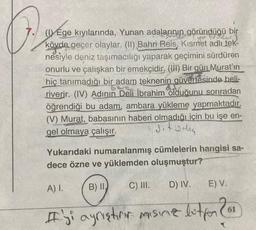 7. (I) Ege kıyılarında, Yunan adalarının göründüğü bir
köyde geçer olaylar. (II) Bahri Reis, Kısmet adlı tek-
nesiyle deniz taşımacılığı yaparak geçimini sürdüren
onurlu ve çalışkan bir emekçidir. (III) Bir gün Murat'ın
hiç tanımadığı bir adam teknenin güvertesinde beli-
riverir. (IV) Adının Deli İbrahim olduğunu sonradan
öğrendiği bu adam, ambara yükleme yapmaktadır.
(V) Murat, babasının haberi olmadığı için bu işe en-
gel olmaya çalışır.
Yukarıdaki numaralanmış cümlelerin hangisi sa-
dece özne ve yüklemden oluşmuştur?
A) I. B) II. C) III. D) IV. E) V.
II'yi ayrıştırır mısınız lütfen?
61